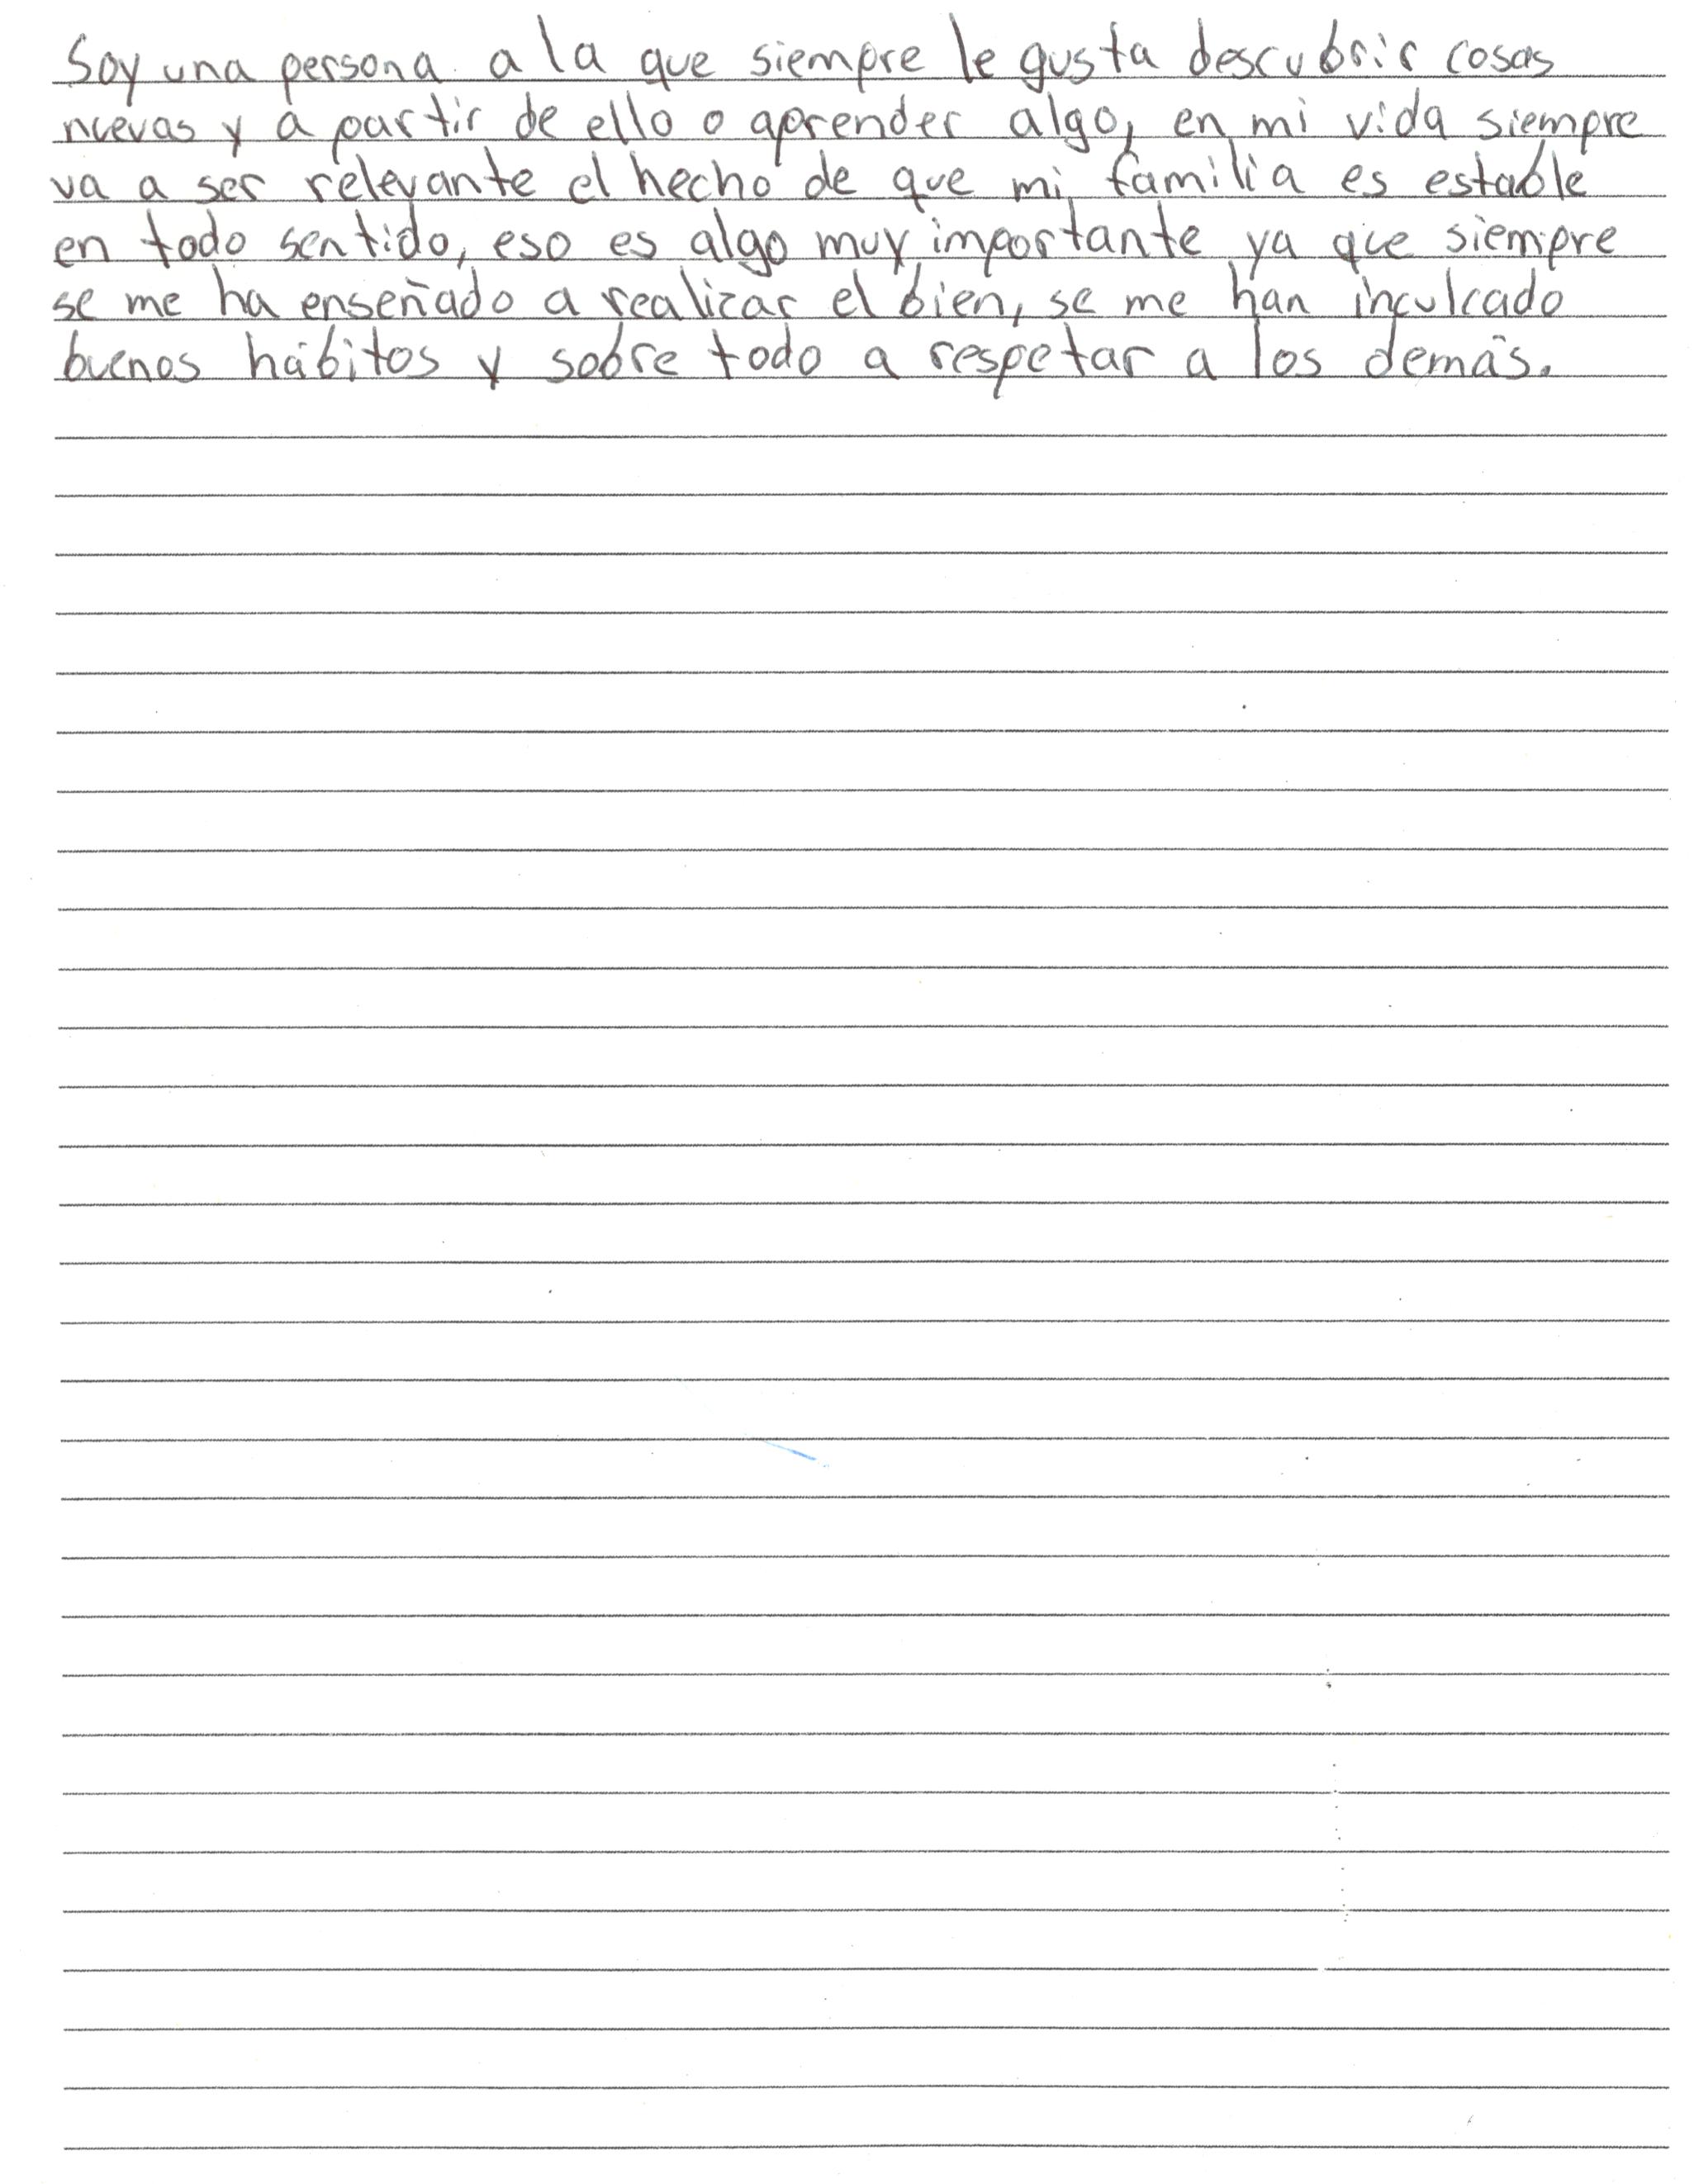 Soy una persona a la que siempre le gusta descubrir cosas
nuevas y a partir de ello o aprender algo, en mi vida siempre
va a ser relevante el hecho de que mi familia es estable
en todo sentido, eso es algo muy importante ya que siempre
se me ha enseñado a realizar el bien, se me han inculcado
buenos hábitos y sobre todo a respetar a los demás.